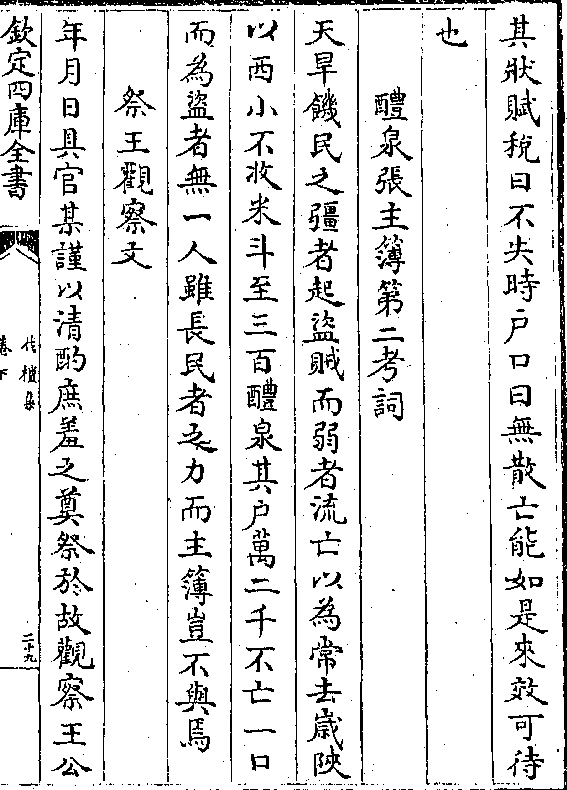 其狀賦稅曰不失時戶口曰無散亡能如是來效可待
也
醴泉張主簿第二考詞
天旱饑民之彊者起盜賊而弱者流亡以為常去歲陜
以西小不收米斗至三百醴泉其戶萬二千不亡一口
而為盜者無一人雖長民者之力而主簿豈不與焉
祭王觀察文
年月日具官某謹以清酌庶羞之奠祭於故觀察王公
欽定四庫全書
伐檀集
卷下
二十九